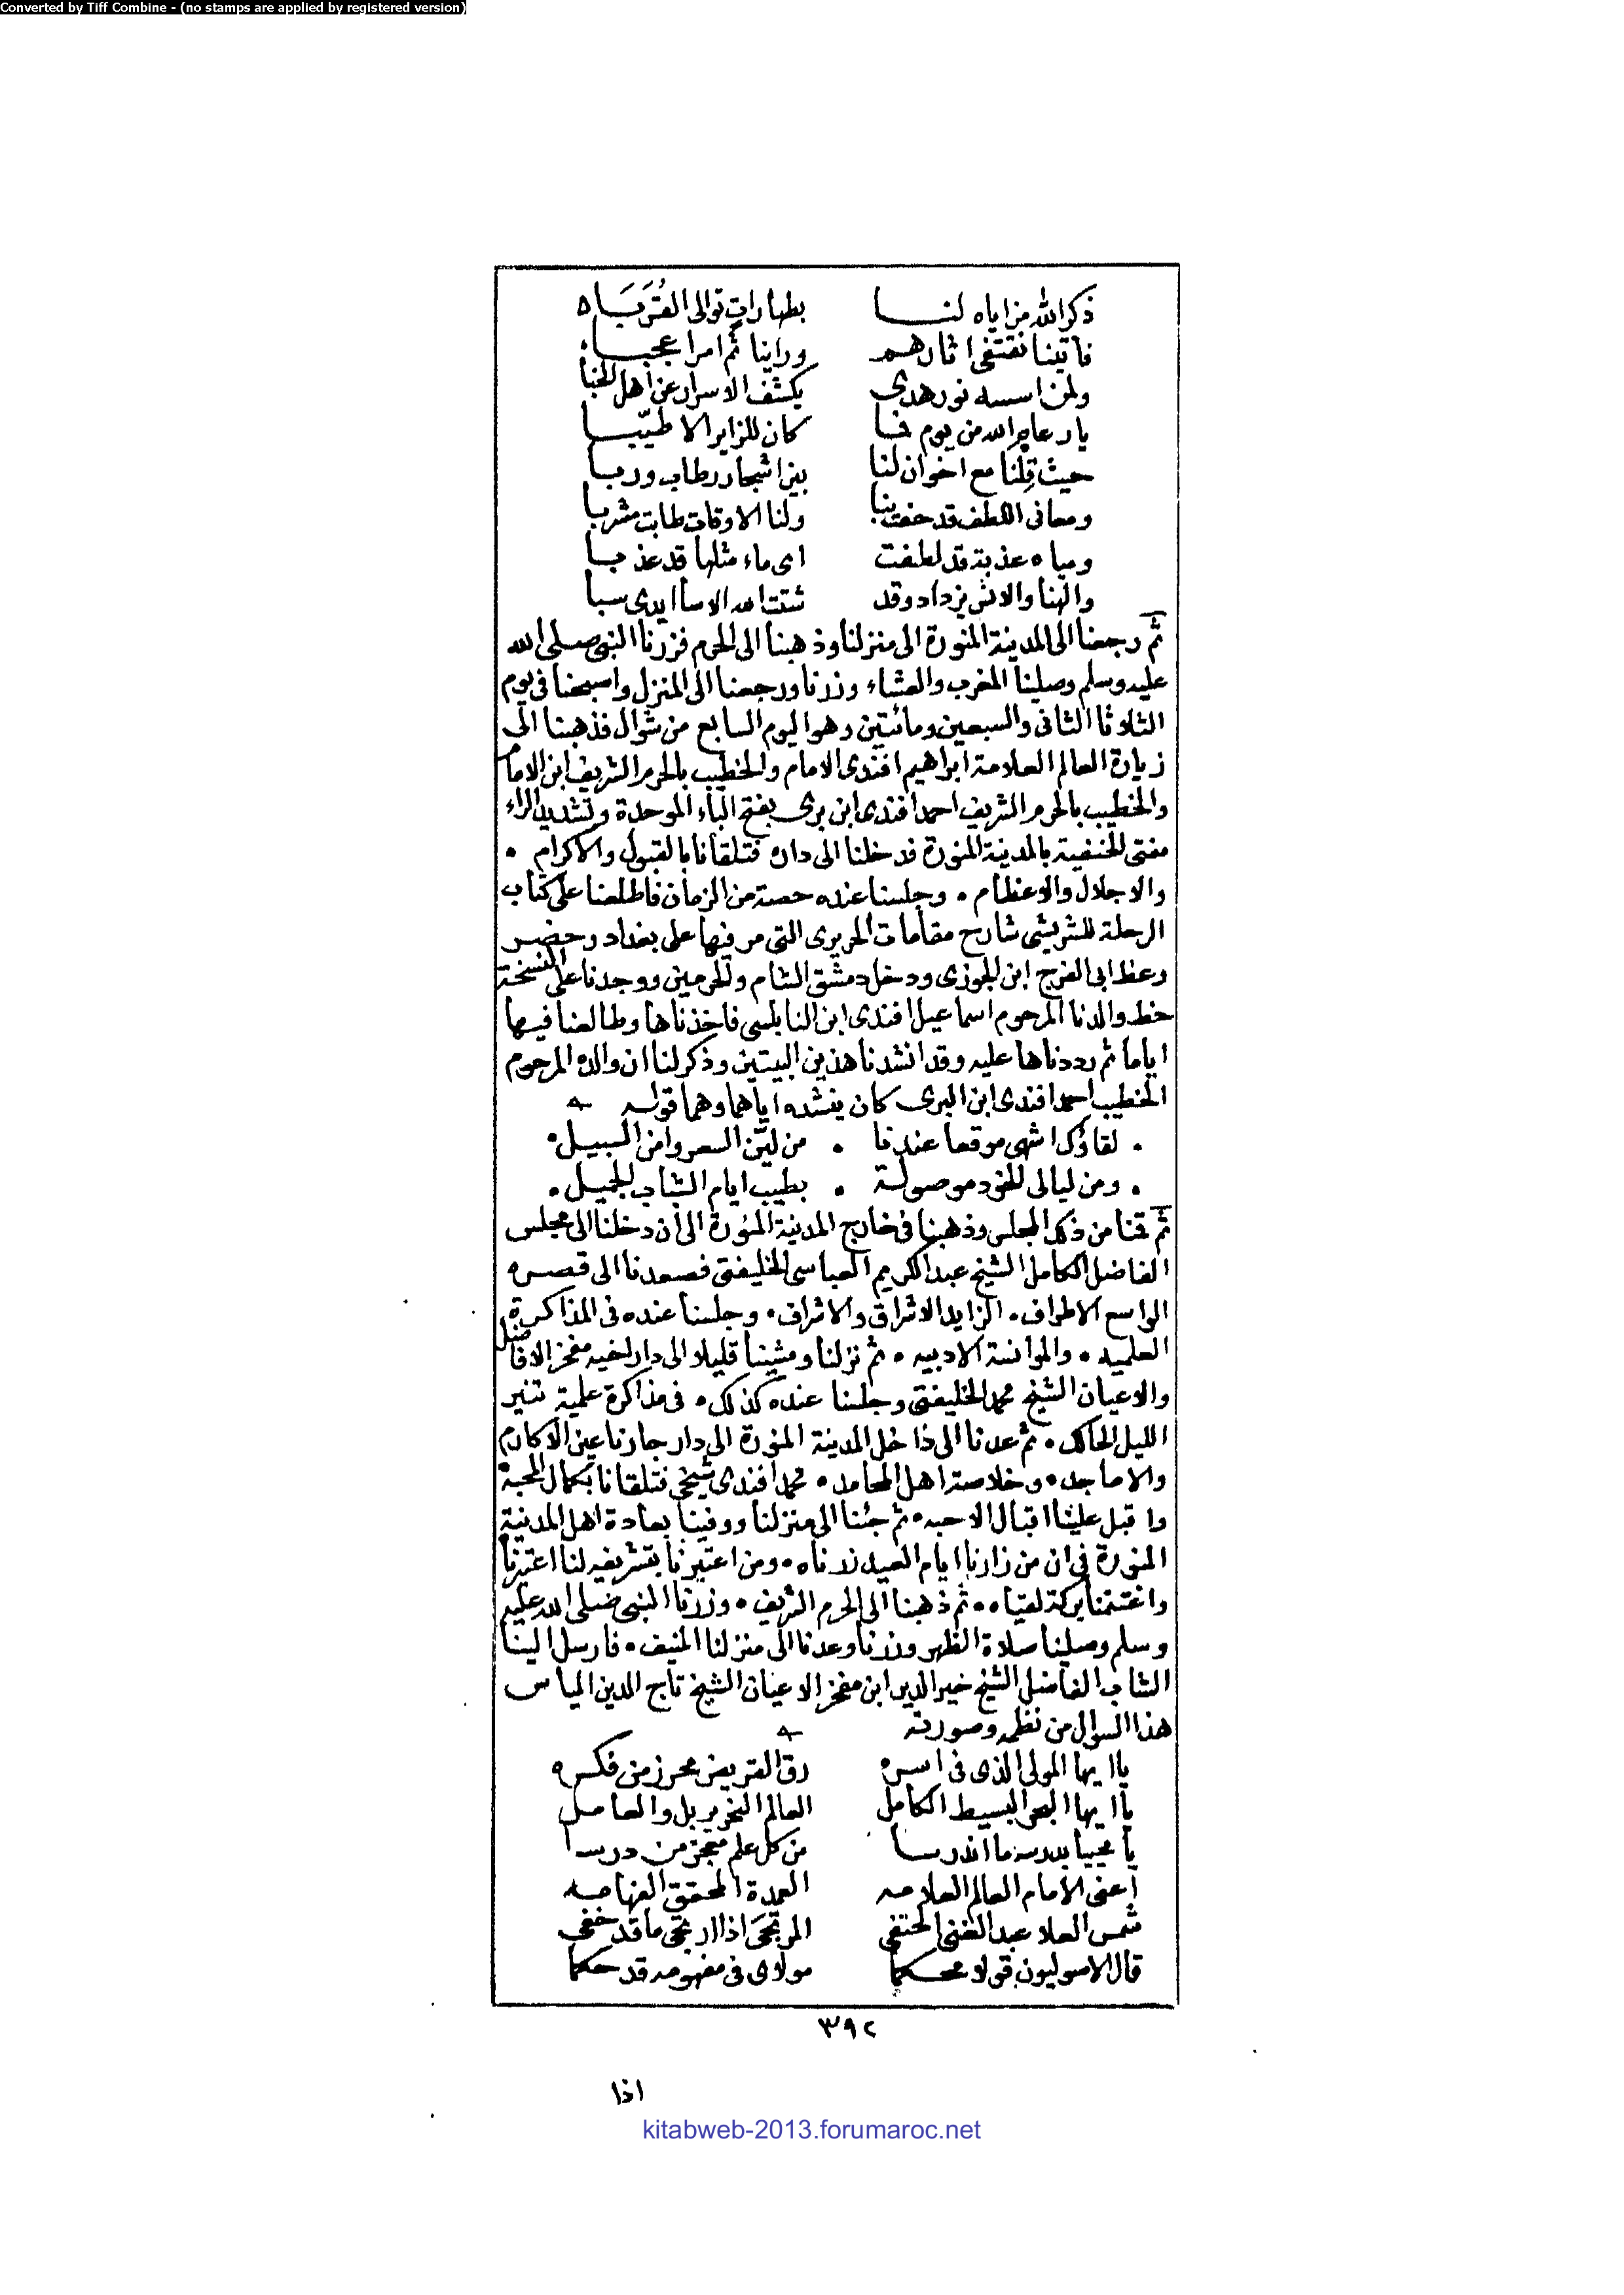 Converted by Tiff Combine - (no stamps are applied by registered version)
ذكر الله مزاياه لنا بطهارات توالى القُرَبَا
فاتينا نقتفى اثارهم وراينا ثم امرا عجبا
ولمن اسسه نور هدى يكشف الاسرار عن اهل الخبا
يا رعاه الله من يوم كان للزاير الا طيّبا
حيث قِلْنا مع اخوان لنا بين اشجار رطاب وربا
ومعانى اللطف قد حفت بنا ولنا الاوقات طابت مشربا
ومياه عذبة قد لطفت اى ماء مثلها قد عذبا
والهنا والانس يزداد وقد شتت الله الاسا ايدى سبا
ثم رجعنا الى المدينة المنورة الى منزلنا وذهبنا الى الحرم فزرنا النبى صلى الله
عليه وسلم وصلينا المغرب والعشاء وزرنا ورجعنا الى المنزل واصبحنا فى يوم
الثلاوثا الثانى والسبعين ومائتين وهو اليوم السابع من شوال فذهبنا الى
زيارة العالم العلامة ابراهيم افندى الامام والخطيب بالحرم الشريف ابن الامام
والخطيب بالحرم الشريف احمد افندى ابن برى بفتح الباء الموحدة وتشديد الراء
مفتى الحنفية بالمدينة المنورة فدخلنا الى داره فتلقانا بالقبول والاكرام •
والاجلال والاعظام • وجلسنا عنده حصة من الزمان فاطلعنا على كتاب
الرحلة للشريشى شارح مقامات الحريرى التى مر فيها على بغداد وحضر
وعظ ابى الفرج ابن الجوزى ودخل دمشق الشام والحرمين ووجدنا على النسخة
خط والدنا المرحوم اسماعيل افندى ابن النابلسى فاخذناها وطالعنا فيها
اياما ثم رددناها عليه وقد انشدنا هذين البيتين وذكر لنا ان والده المرحوم
الخطيب احمد افندى ابن البرى كان ينشده اياهما وهما قوله
• لقاؤك اشهى موقعا عندنا • من ليّن السعر وامن السبيل •
• ومن ليالى الخود موصولة • بطيب ايام الشباب الجميل •
ثم قمنا من ذلك المجلس وذهبنا فى خارج المدينة المنورة الى أن دخلنا الى مجلس
الفاضل الكامل الشيخ عبد الكريم العباسى الخليفتى فصعدنا الى قصره
الواسع الاطراف • الزايد الاشراق والاشراف • وجلسنا عنده فى المذاكرة
العلميه • والموانسة الادبيه • ثم نزلنا ومشينا قليلا الى دار اخيه مفخر الافاضل
والاعيان الشيخ محمد الخليفتى وجلسنا عنده كذلك • فى مذاكرة علمية تنير
الليل الحالك • ثم عدنا الى داخل المدينة المنورة الى دار جارنا عين الاكارم
والاماجد • وخلاصة اهل المحامد • محمد افندى شيخى فتلقانا بكمال المحبة
واقبل علينا اقبال الاحبه • ثم جئنا الى منزلنا ووفينا بعادة اهل المدينة
المنورة فى ان من زارنا ايام العيد زرناه • ومن اعتبرنا بتشريفه لنا اعتبرنا
واغتنمنا بركة لقياه • ثم ذهبنا الى الحرم الشريف • وزرنا النبى صلى الله عليه
وسلم وصلينا صلاة الظهر وزرنا وعدنا الى منزلنا المنيف • فارسل الينا
الشاب الفاضل الشيخ خير الدين ابن مفخر الاعيان الشيخ تاج الدين الياس
هذا السوال من نظمه وصورته
يا ايها المولى الذى فى اسره رق القريض محرز من فكره
يا ايها البحر البسيط الكامل العالم النحرير بل والعامل
يا محييا بدرسه ما اندرسا من كل علم معجز من درسا
أعنى الامام العالم العلامه العمدة المحقق الفهامه
شمس العلا عبد الغنى الحنفى المرتجى اذا ارتجى ما قد خفى
قال الاصوليون قولا محكما مولاى فى مفهومه قد حكما
٣٩٢
اذا
kitabweb-2013.forumaroc.net